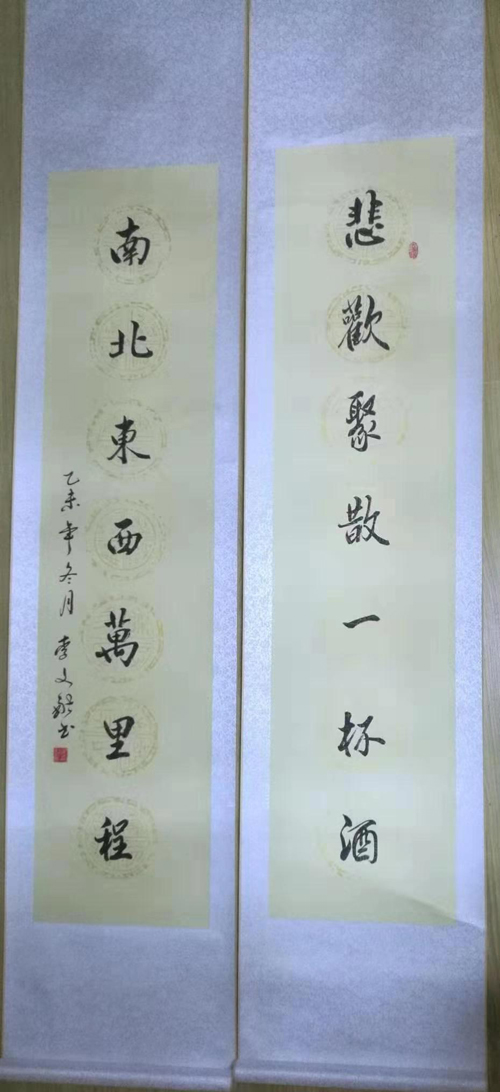 悲歡聚散一杯酒
南北東西萬里程
乙未年冬月 李文
书